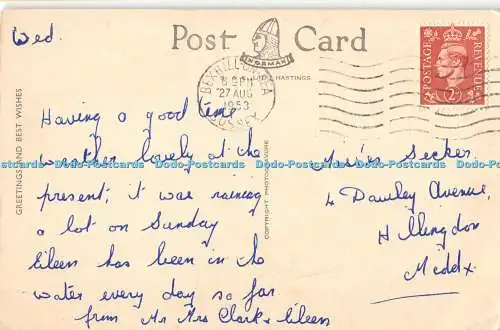 Wed.
Post Card
NORMAN
HASTINGS
BEXHILL-ON-SEA
8 PM
27 AUG
1953
SUSSEX
POSTAGE
REVENUE
2D
GREETINGS AND BEST WISHES
COPYRIGHT PHOTOGRAVURE
Having a good time
weather lovely at the
present; it was raining
a lot on Sunday
Eileen has been in the
water every day so far
from Mr Mrs Clark & Eileen
Seeker
4 Dawley Avenue,
Hillingdon
Middx
www.postcards-data.com